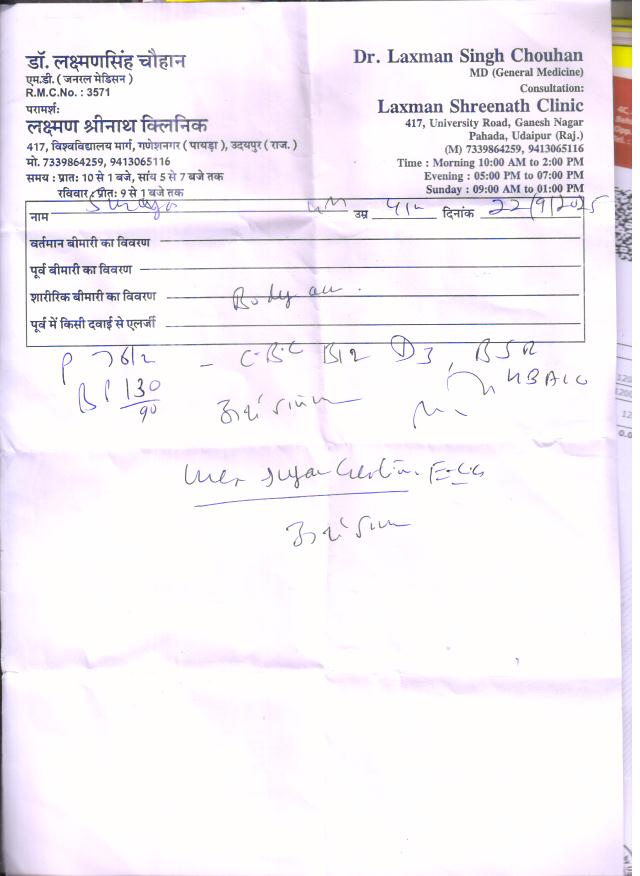 डॉ. लक्ष्मणसिंह चौहान
एम.डी. ( जनरल मेडिसन )
R.M.C.No. : 3571
परामर्श:
लक्ष्मण श्रीनाथ क्लिनिक
417, विश्वविद्यालय मार्ग, गणेशनगर ( पायड़ा ), उदयपुर ( राज. )
मो. 7339864259, 9413065116
समय : प्रात: 10 से 1 बजे, सांय 5 से 7 बजे तक
रविवार : प्रात: 9 से 1 बजे तक
Dr. Laxman Singh Chouhan
MD (General Medicine)
Consultation:
Laxman Shreenath Clinic
417, University Road, Ganesh Nagar
Pahada, Udaipur (Raj.)
(M) 7339864259, 9413065116
Time : Morning 10:00 AM to 2:00 PM
Evening : 05:00 PM to 07:00 PM
Sunday : 09:00 AM to 01:00 PM
नाम उम्र दिनांक 22/9/2025
वर्तमान बीमारी का विवरण
पूर्व बीमारी का विवरण
शारीरिक बीमारी का विवरण Body
पूर्व में किसी दवाई से एलर्जी
P 76/2 - C.B.C B12 D3,
BP 130/90 HBA1C
ECG